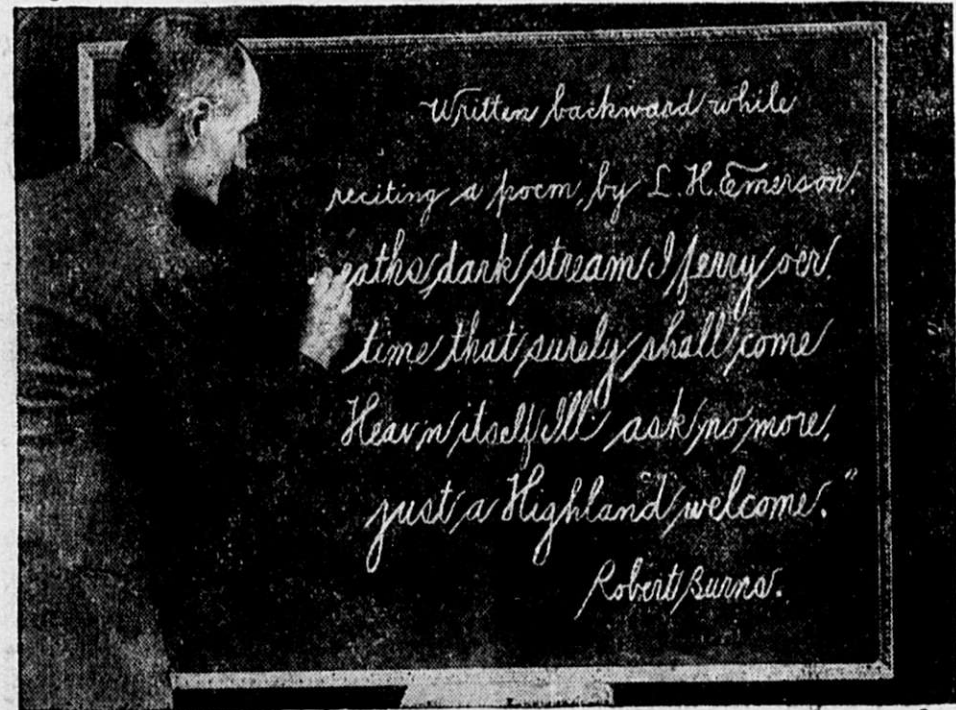 Written backward while
reciting a poem, by L. H. Emerson.
eaths dark stream I ferry oer.
time that surely shall come
Heav n itself Ill ask no more,
just a Highland welcome."
Robert Burns.